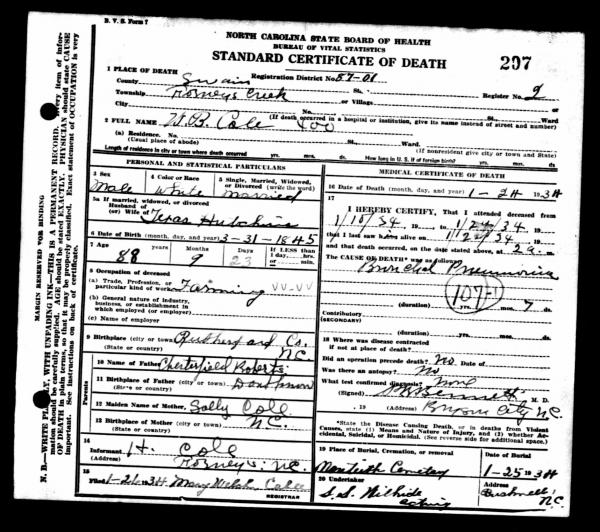 B. V. S. Form 7
NORTH CAROLINA STATE BOARD OF HEALTH
BUREAU OF VITAL STATISTICS
STANDARD CERTIFICATE OF DEATH
207
1 PLACE OF DEATH
Registration District No. 87-01
County Swain St. Register No. 9
Township Forneys Creek or Village
City St. Ward
(If death occurred in a hospital or institution, give its name instead of street and number)
2 FULL NAME W. B. Cole 400
(a) Residence. No. St. Ward
(Usual place of abode) (If nonresident give city or town and State)
Length of residence in city or town where death occurred yrs. mos. ds. How long in U. S. if of foreign birth? yrs. mos. ds.
PERSONAL AND STATISTICAL PARTICULARS
3 Sex 4 Color or Race 5 Single, Married, Widowed, or Divorced (write the word)
Male White Married
5a If married, widowed, or divorced
Husband of
(or) Wife of Texas Hutchins
6 Date of Birth (month, day, and year) 3-31-1845
7 Age Years Months Days If LESS than 1 day, hrs. or min.
88 9 23
8 Occupation of deceased
(a) Trade, Profession, or particular kind of work Farming VV-VV
(b) General nature of industry, business, or establishment in which employed (or employer)
(c) Name of employer
9 Birthplace (city or town) Rutherford Co.
(State or country) N.C.
Parents
10 Name of Father Chesterfield Roberts
11 Birthplace of Father (city or town) Dont know
(State or country)
12 Maiden Name of Mother Sally Cole
13 Birthplace of Mother (city or town) N.C.
(State or country)
14
Informant H. Cole
(Address) Forneys, N.C.
15
Filed 1-26-1934 Mary Cole
REGISTRAR
MEDICAL CERTIFICATE OF DEATH
16 Date of Death (month, day, and year) 1-24 1934
17
I HEREBY CERTIFY, That I attended deceased from
1/10/34, 19 to 1/24/34, 19
that I last saw alive on 1/22/34, 19
and that death occurred, on the date stated above, at 2 a. m.
The CAUSE OF DEATH* was as follows:
Bronchial Pneumonia
107-1
(duration) yrs. mos. 7 ds.
Contributory
(SECONDARY)
(duration) yrs. mos. ds.
18 Where was disease contracted
if not at place of death?
Did an operation precede death? No Date of
Was there an autopsy? No
What test confirmed diagnosis? None
(Signed) Bennett M. D.
, 19 (Address) Bryson City N.C.
*State the Disease Causing Death, or in deaths from Violent Causes, state (1) Means and Nature of Injury, and (2) whether Accidental, Suicidal, or Homicidal. (See reverse side for additional space.)
19 Place of Burial, Cremation, or removal Date of Burial
Monteith Cemetery 1-25 1934
20 Undertaker Address
S. S. Wilhide Bushnell,
acting N.C.
MARGIN RESERVED FOR BINDING
N. B.—WRITE PLAINLY, WITH UNFADING INK—THIS IS A PERMANENT RECORD. Every item of information should be carefully supplied. AGE should be stated EXACTLY. PHYSICIAN should state CAUSE OF DEATH in plain terms, so that it may be properly classified. Exact statement of OCCUPATION is very important. See instructions on back of certificate.